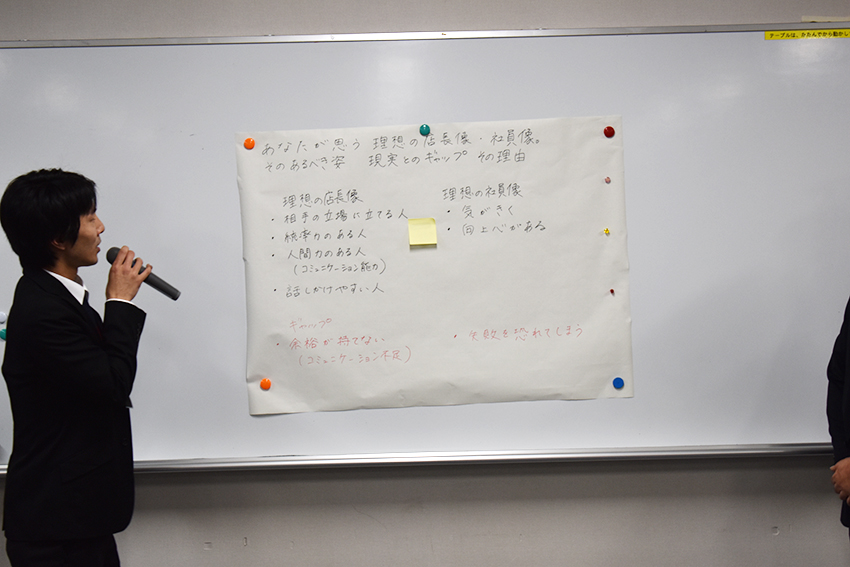 テーブルは、かたんでから動かし
あなたが思う 理想の店長像・社員像。
そのあるべき姿 現実とのギャップ その理由
理想の店長像
・相手の立場に立てる人
・統率力のある人
・人間力のある人
(コミュニケーション能力)
・話しかけやすい人
理想の社員像
・気がきく
・向上心がある
ギャップ
・余裕が持てない
(コミュニケーション不足)
・失敗を恐れてしまう